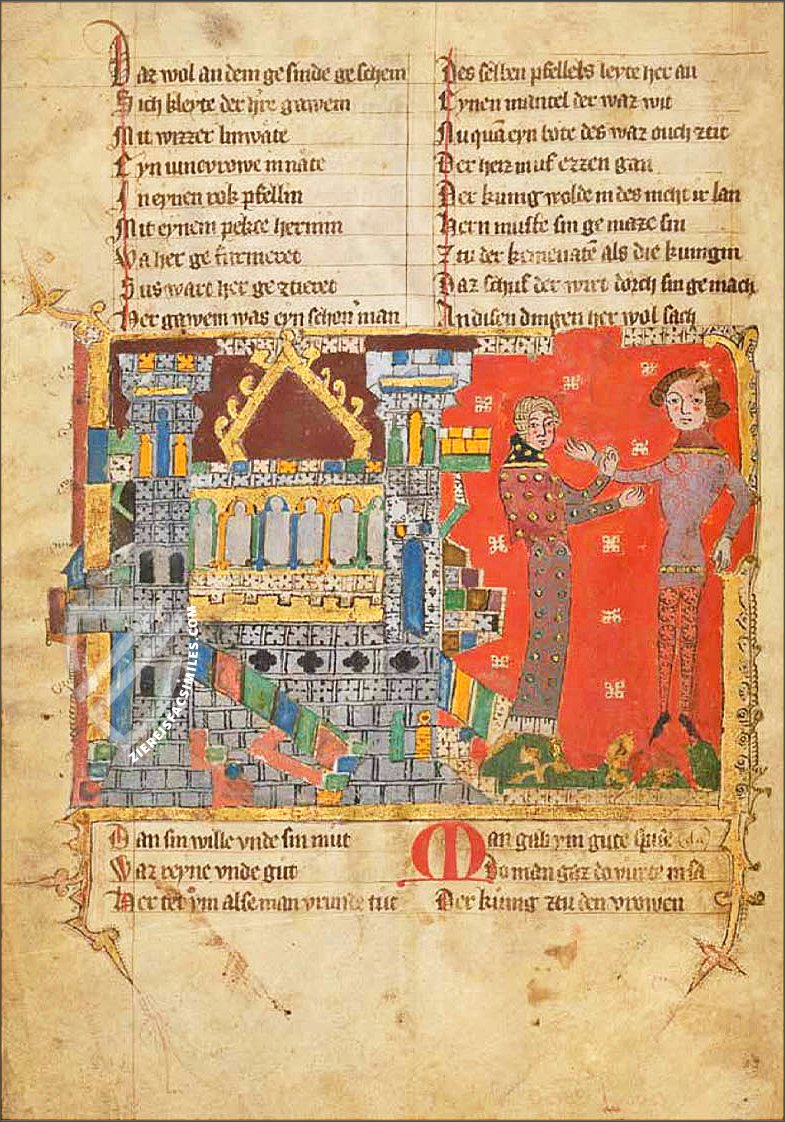 Daz wol an dem ge sinde ge schein
Sich kleyte der h're gawein
Mit wizzer linwate
Eyn iuncvrowe in nate
In eynen rok pfellin
Mit eynem pelcze hermin
Wa her ge furnieret
Sus wart her ge ztieret
Her gawein was eyn schon man
Des selben pfellels leyte her an
Eynen mantel der waz wit
Nu quā eyn bote des waz ouch ztit
Der hetz in uf ezzen gan
Der kunig wolde in des nicht ir lan
Hern muste sin ge maze sin
Ztu der kemenatē als die kunigin
Daz schuf der wirt dorch sin gemach
An disen dingen her wol sach
ZIEREISFACSIMILES.COM
Dan sin wille vnde sin mut
Waz reyne vnde gut
Her tet ym alse man vrunde tut
Man gab ym gute spise
Do man gaz do vurte in sa
Der kunig ztu den vrowen